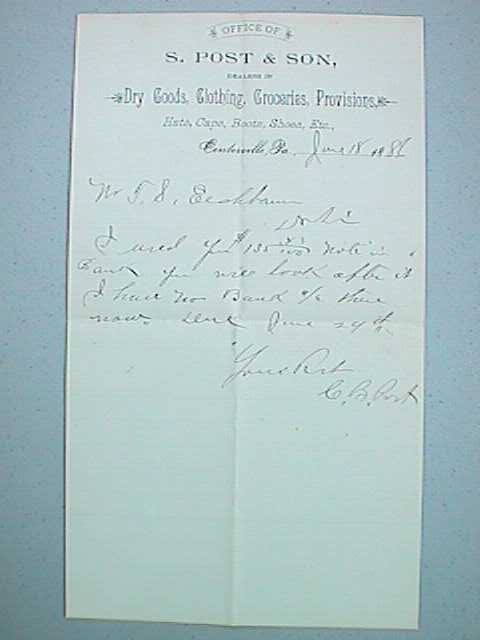 OFFICE OF
S. POST & SON,
DEALERS IN
Dry Goods, Clothing, Groceries, Provisions,
Hats, Caps, Boots, Shoes, Etc.,
Centerville, Pa. June 18 1886
Mr T. S.
I used your $135 note in
Bank you will look after it
I have no Bank a/c there
now. Due June 24th
Yours Rest
C. B. Post